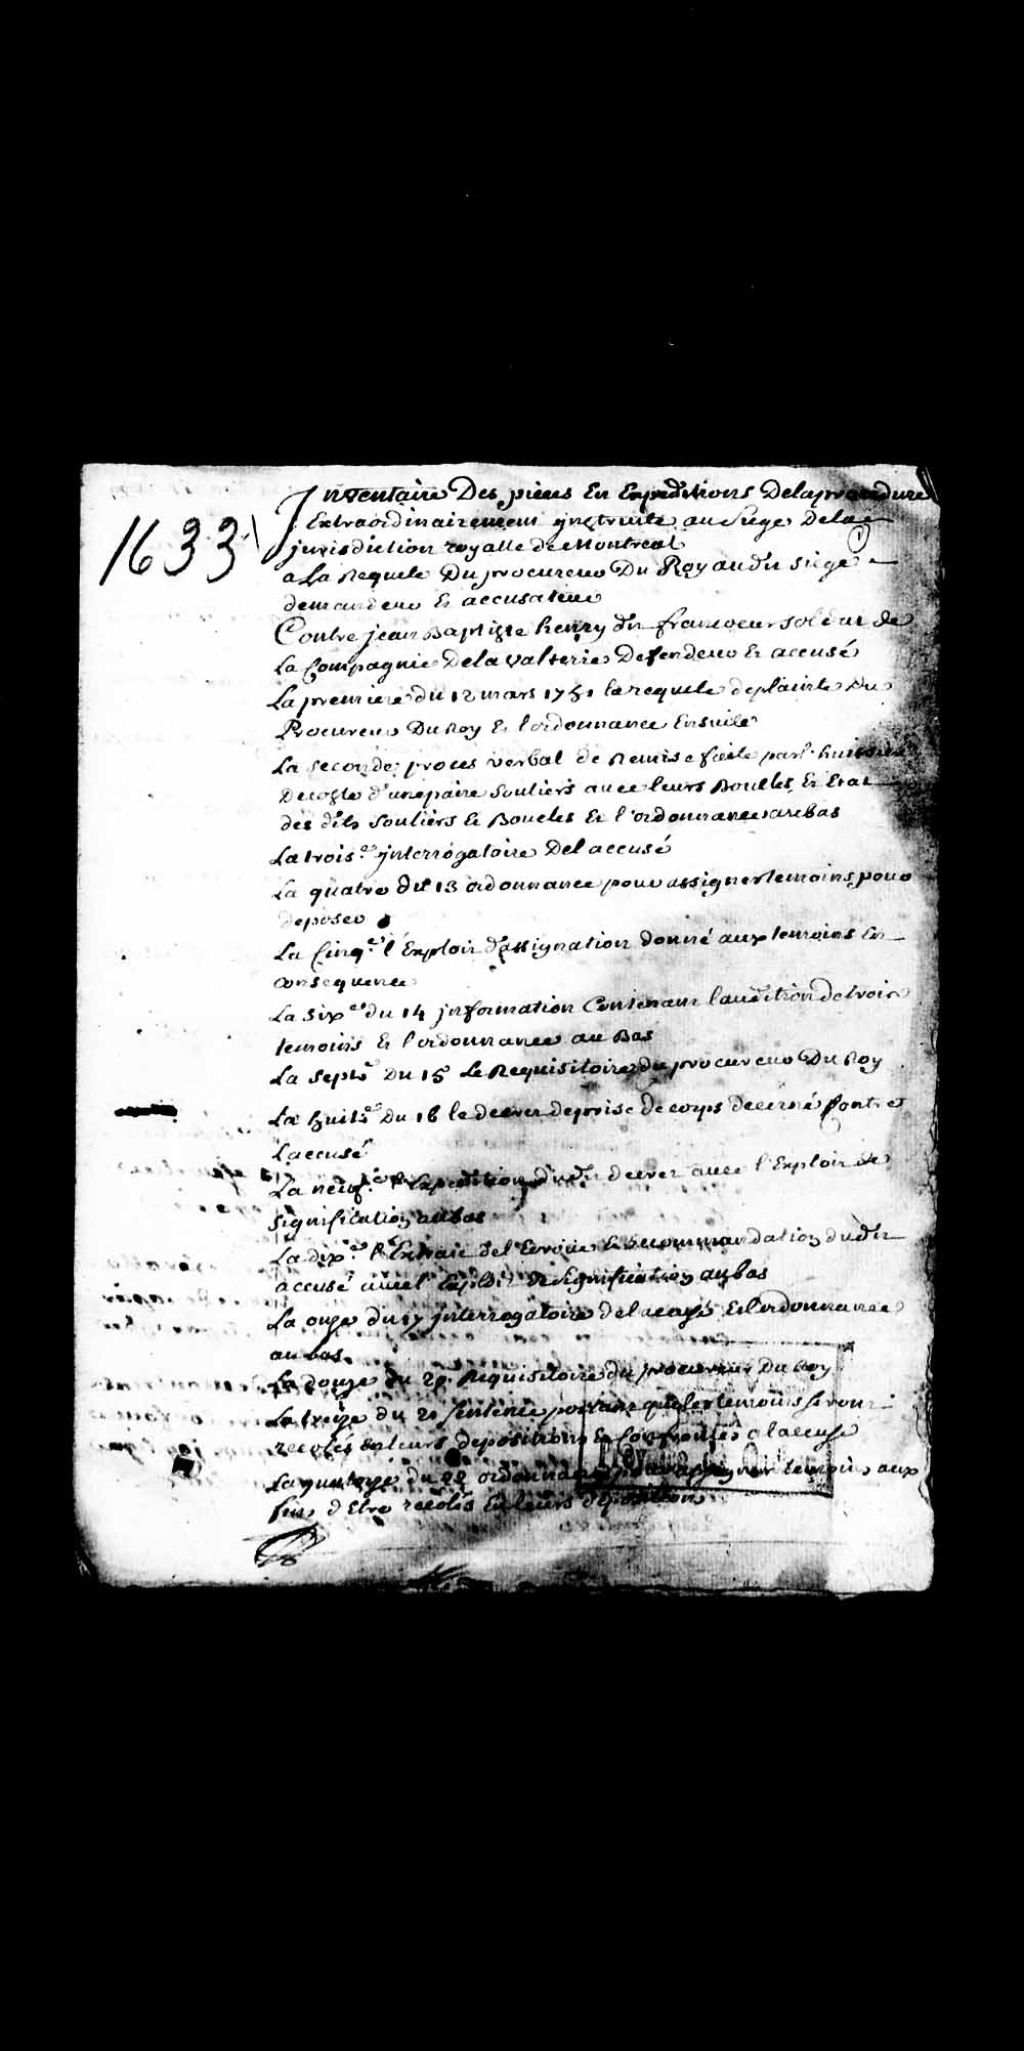 Inventaire Des pieces En Expeditions Dela procedure
1633
Extraordinairement ynstruite au siege Dela
1
jurisdiction royalle de Montreal
a La Requete Du procureur Du Roy audit siege
demandeur Et accusateur
Contre jean Baptiste henry dit francoeur soldat de
La Compagnie Dela Valterie Defendeur Et accusé
La premiere du 12 mars 1751 la requete de plainte du
Procureur Du Roy Et l'ordonnance Ensuite
La seconde proces verbal de Remise faite par l'huissier
Decoste d'une paire souliers avec leurs Boucles Et Etat
des dits souliers Et Boucles Et l'ordonnance au bas
La trois.e ynterrogatoire De l accusé
La quatre du 13 ordonnance pour assigner temoins pour
deposer
La Cinq.e l'Exploit d'assignation donné aux temoins En
consequence
La six.e du 14 jnformation Contenant l'audition de trois
temoins Et l'ordonnance au Bas
La sept.e Du 15 Le Requisitoire du procureur Du Roy
La huit.e Du 16 le decret de prise de corps decerné Contre
L accusé
La neuf.e l'Expedition dudit decret avec l'Exploit de
signification au bas
La dix.e l'Extrait de l'Ecroüe Et recommandation dudit
accusé avec l'Exploit de signification au bas
La onze du 17 jnterrogatoire de l accusé Et l'ordonnance
au bas
La douze du 20 Requisitoire du procureur Du Roy
La treize du 20 sentence portant que les temoins seront
recolés en leurs depositions Et Confrontés a l accusé
La quatorze du 22 ordonnance pour assigner temoins aux
fins d'Etre recolés En leurs deposition